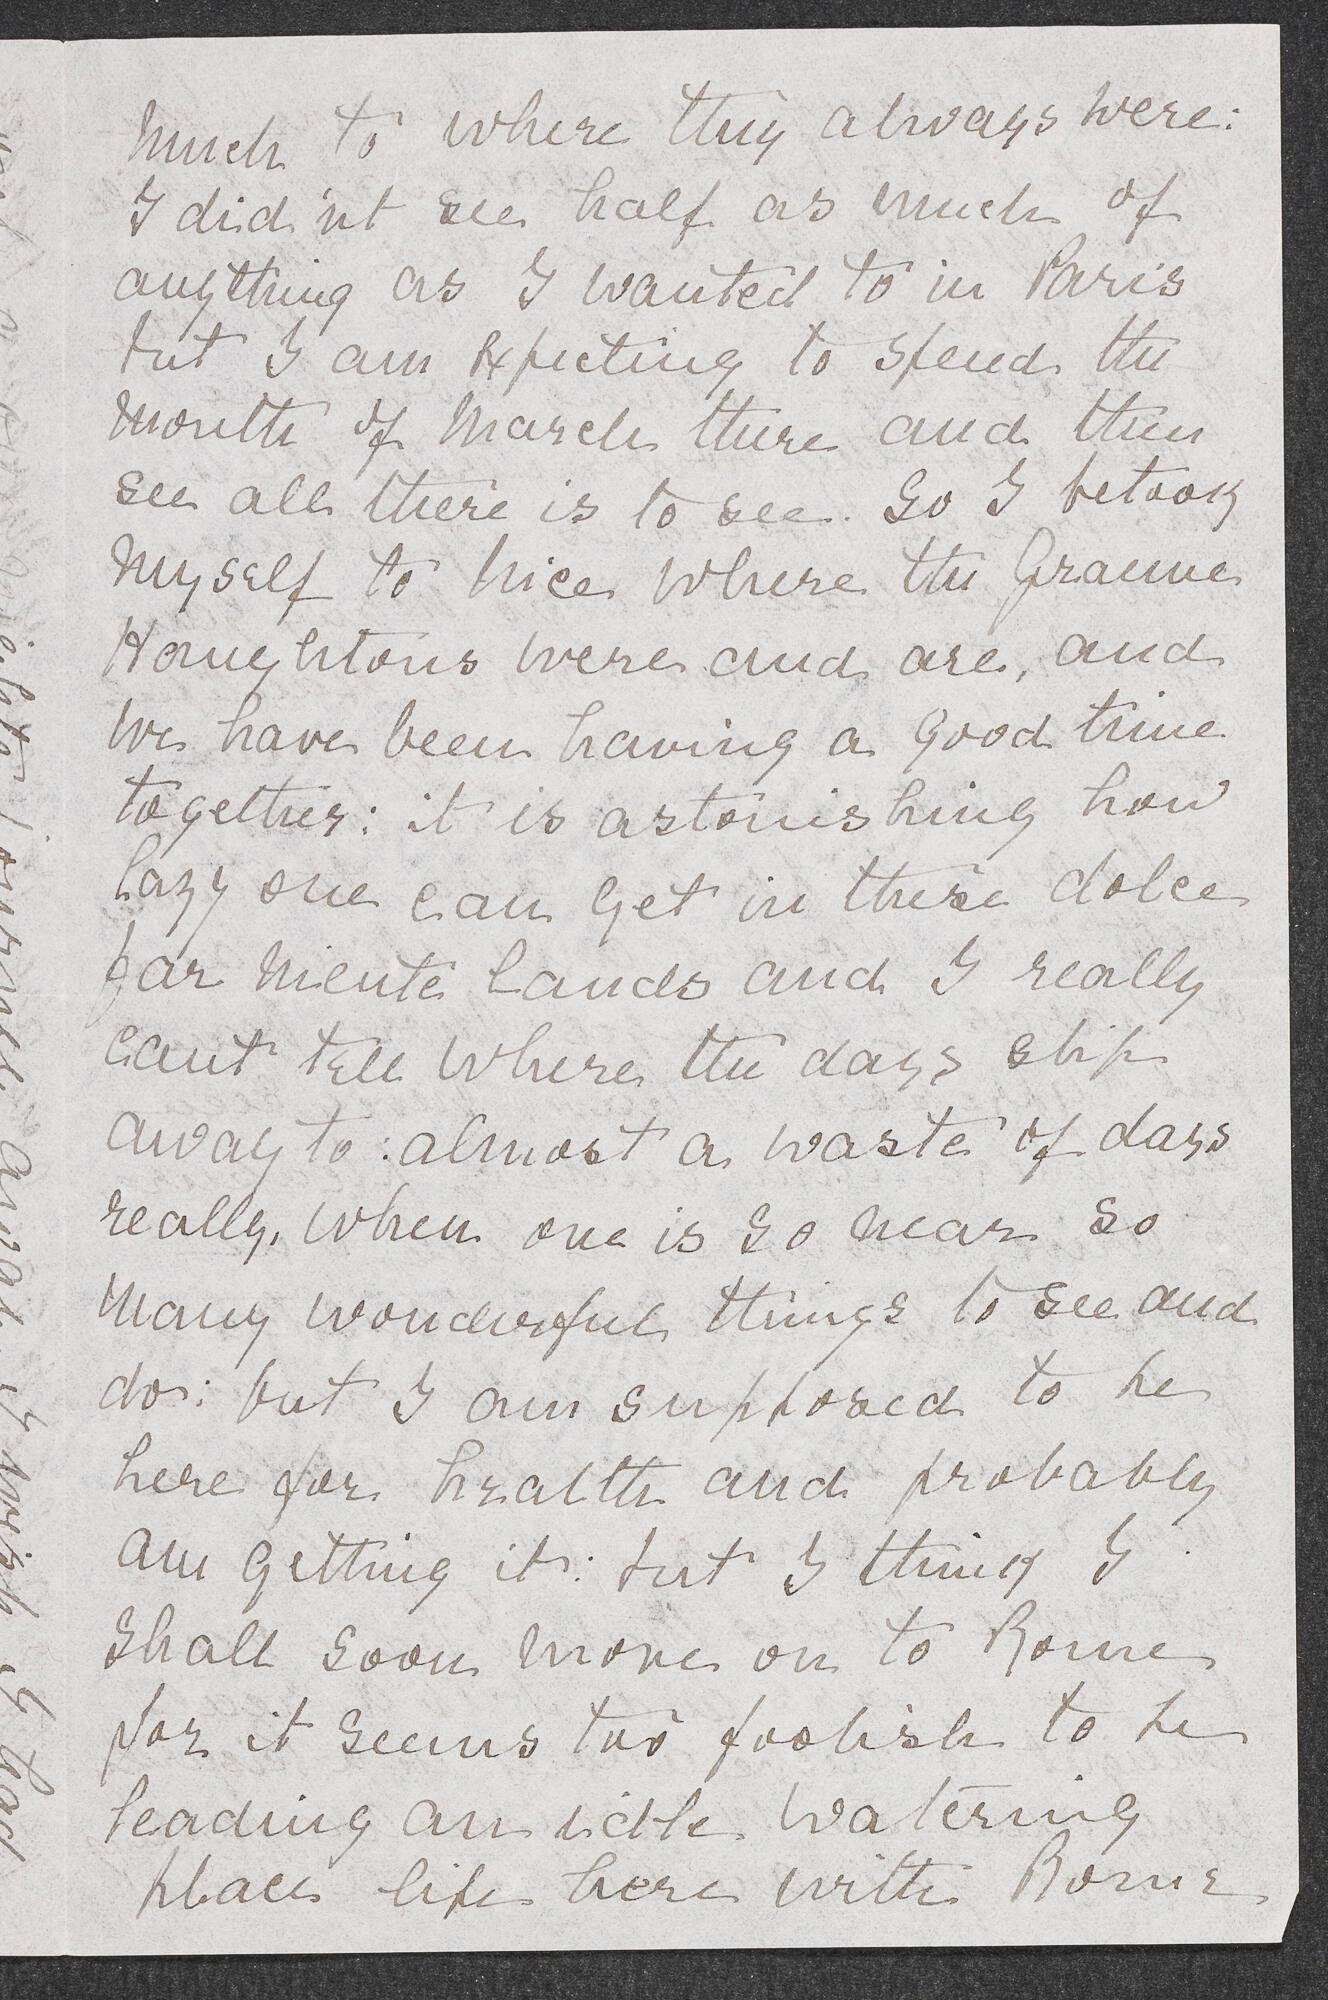 much to where they always were:
I did'nt see half as much of
anything as I wanted to in Paris
but I am expecting to spend the
month of March there and then
see all there is to see. So I betook
myself to Nice where the Graeme
Haughtons were and are, and
we have been having a good time
together: it is astonishing how
lazy one can get in these dolce
far niente lands and I really
cant tell where the days slip
away to: almost a waste of days
really, when one is so near so
many wonderful things to see and
do: but I am supposed to be
here for health and probably
am getting it: but I think I
shall soon move on to Rome
for it seems too foolish to be
leading an idle watering
place life here with Rome